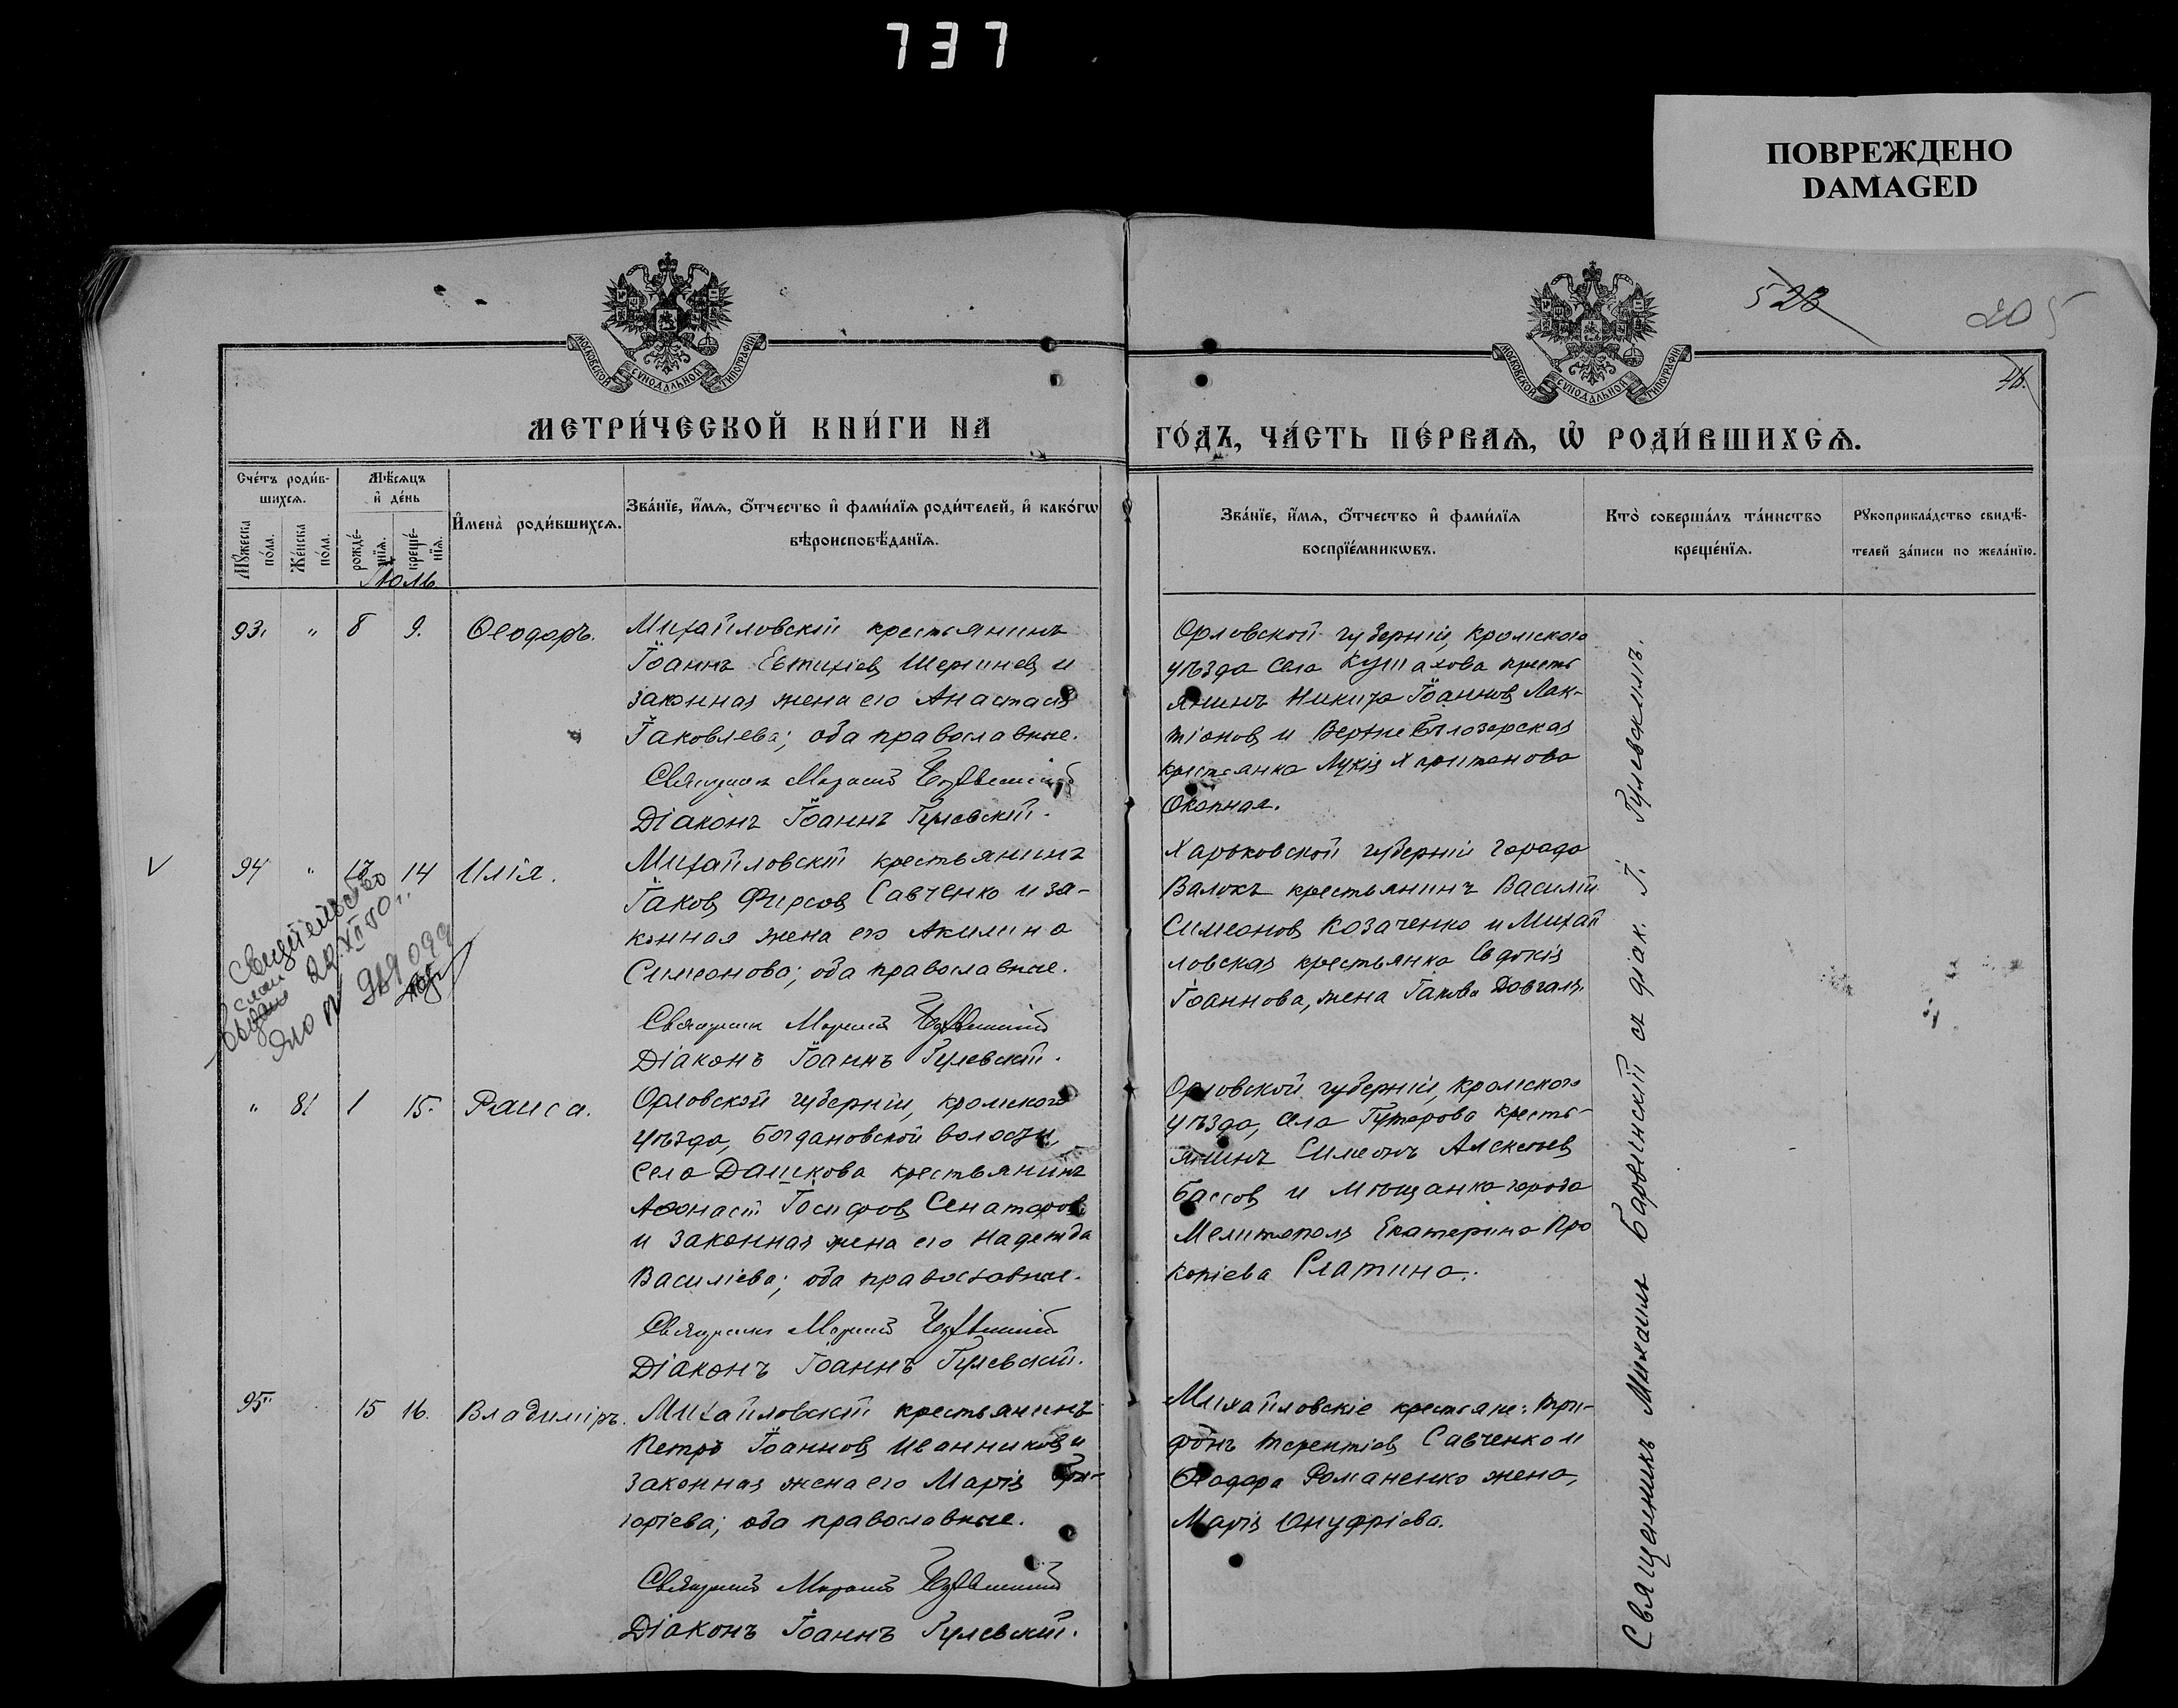 737
ПОВРЕЖДЕНО
DAMAGED
528
205
МОСКОВСКОЙ СУНОДАЛЬНОЙ ТИПОГРАФІИ
МОСКОВСКОЙ СУНОДАЛЬНОЙ ТИПОГРАФІИ
МЕТРИ́ЧЕСКОЙ КНИ́ГИ НА
ГО́ДЪ, ЧА́СТЬ ПЕ́РВАѦ, Ѡ҆ РОДИ́ВШИХСѦ.
Сче́тъ роди́в-
шихсѧ.
Мꙋ́жеска по́ла.
Же́нска по́ла.
Мѣ́сѧцъ
и҆ де́нь
рожде́-
нїѧ.
креще́-
нїѧ.
И҆мена̀ роди́вшихсѧ.
Зва́нїе, и҆́мѧ, ѻ҆́тчество и҆ фами́лїѧ роди́телей, и҆ како́гѡ
вѣроисповѣ́данїѧ.
Зва́нїе, и҆́мѧ, ѻ҆́тчество и҆ фами́лїѧ
воспрїе́мникѡвъ.
Кто̀ соверша́лъ та́инство
креще́нїѧ.
Рꙋкоприкла́дство свидѣ́-
телей за́писи по жела́нїю.
Іюль
93. " 8 9. Ѳеодоръ.
Михайловскій крестьянинъ
Іоаннъ Евтихіев Шершнев и
законная жена его Анастасія
Іаковлева; оба православные.
Священник
Діаконъ Іоаннъ Гулевскій.
Орловской губерніи, Кромского
уѣзда села Кутахова кресть
янинъ Никита Іоаннов Лак-
тіонов и Верхне Бѣлозерская
крестьянка Лукія Харитонова
Окопная.
V 94 " 13 14 Илія.
Михайловскій крестьянинъ
Іаков Фирсов Савченко и за-
конная жена его Акилина
Симеонова; оба православные.
Священник
Діаконъ Іоаннъ Гулевскій.
Харьковской губерніи города
Валокъ крестьянинъ Василій
Симеонов Козаченко и Михай
ловская крестьянка Евдокія
Іоаннова, жена Іакова Довгаля.
Свидетельство
29.XII 50 г.
" 81 1 15. Раиса.
Орловской губерніи, Кромского
уѣзда, Богдановской волости,
села Дашкова крестьянинъ
Аѳонасій Іосифов Сенаторов
и законная жена его Надежда
Василіева; оба православные.
Священник
Діаконъ Іоаннъ Гулевскій.
Орловской губерніи, Кромского
уѣзда, села Гуторова кресть-
янинъ Симеонъ Алексѣев
Бассов и мѣщанка города
Мелитополя Екатерина Про
копіева Слатина.
95. 15 16. Владиміръ.
Михайловскій крестьянинъ
Петръ Іоаннов Иванников и
законная жена его Марія Гри-
горіева; оба православные.
Священник
Діаконъ Іоаннъ Гулевскій.
Михайловскіе крестьяне: Три-
фонъ Терентіев Савченко и
Ѳеодора Романенко жена,
Марія Онуфріева.
Священникъ Михаилъ Барвинскій съ діак. І. Гулевскимъ.